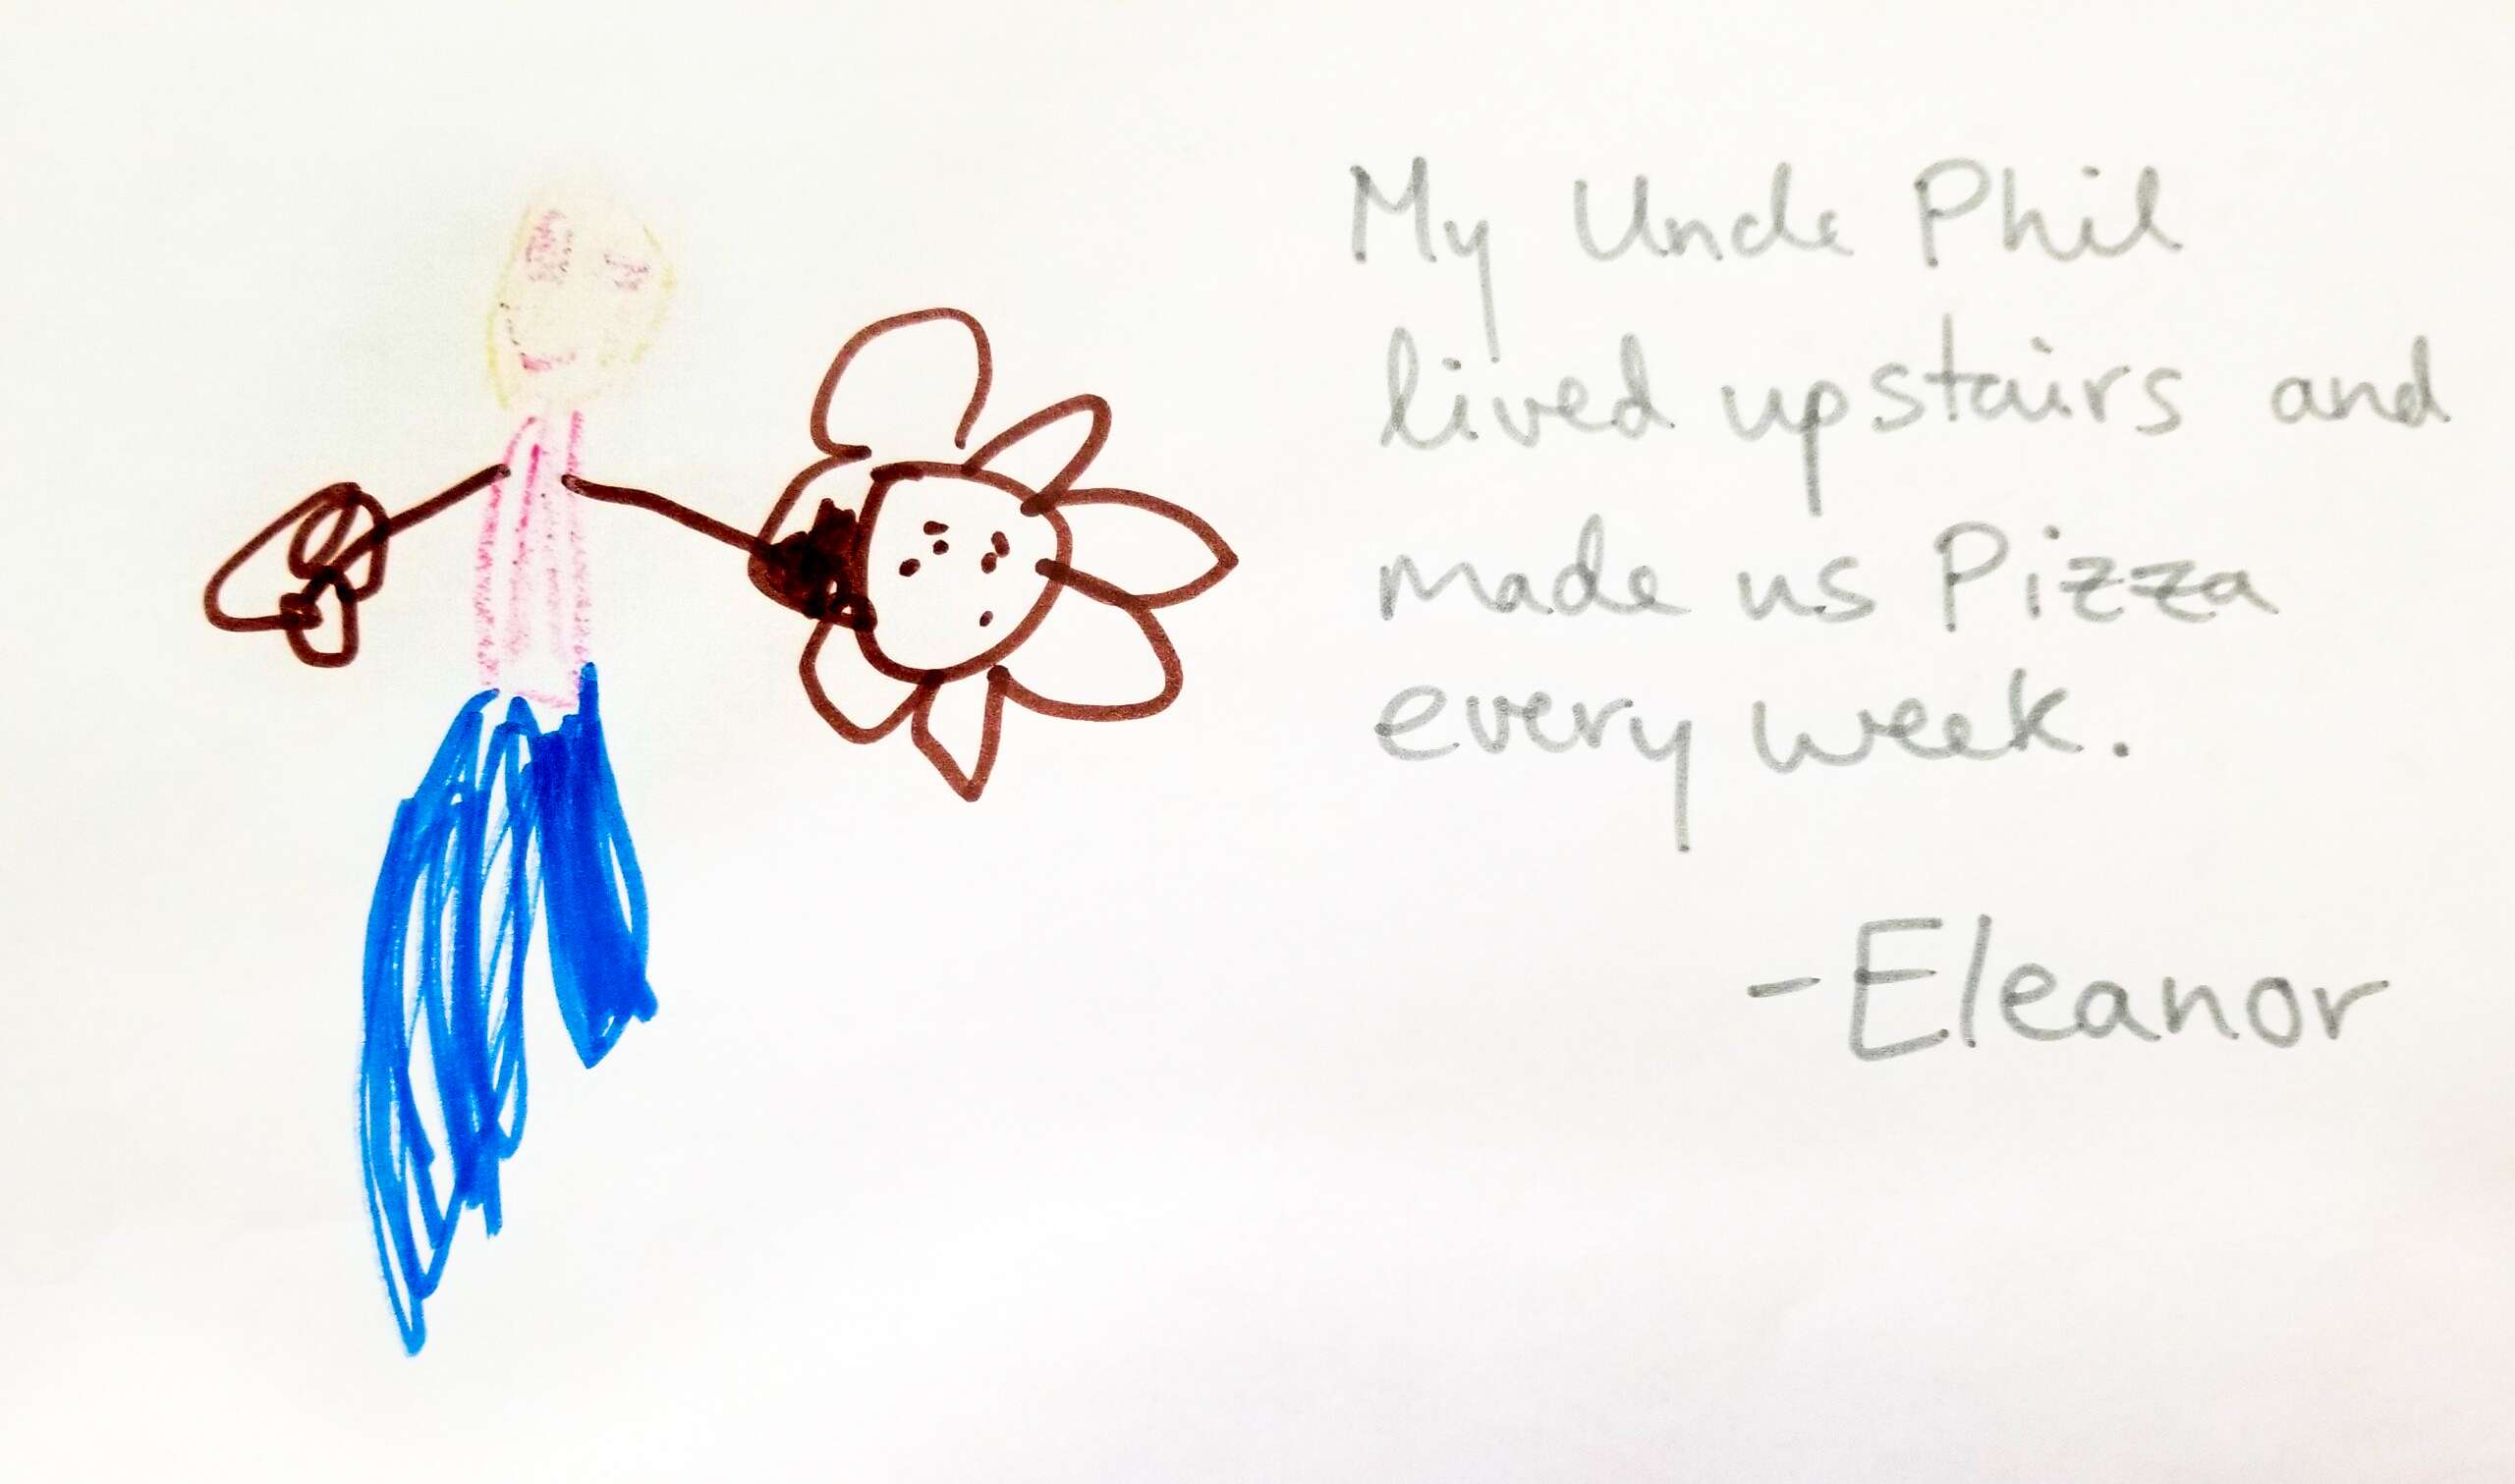 My Uncle Phil
lived upstairs and
made us Pizza
every week.
-Eleanor